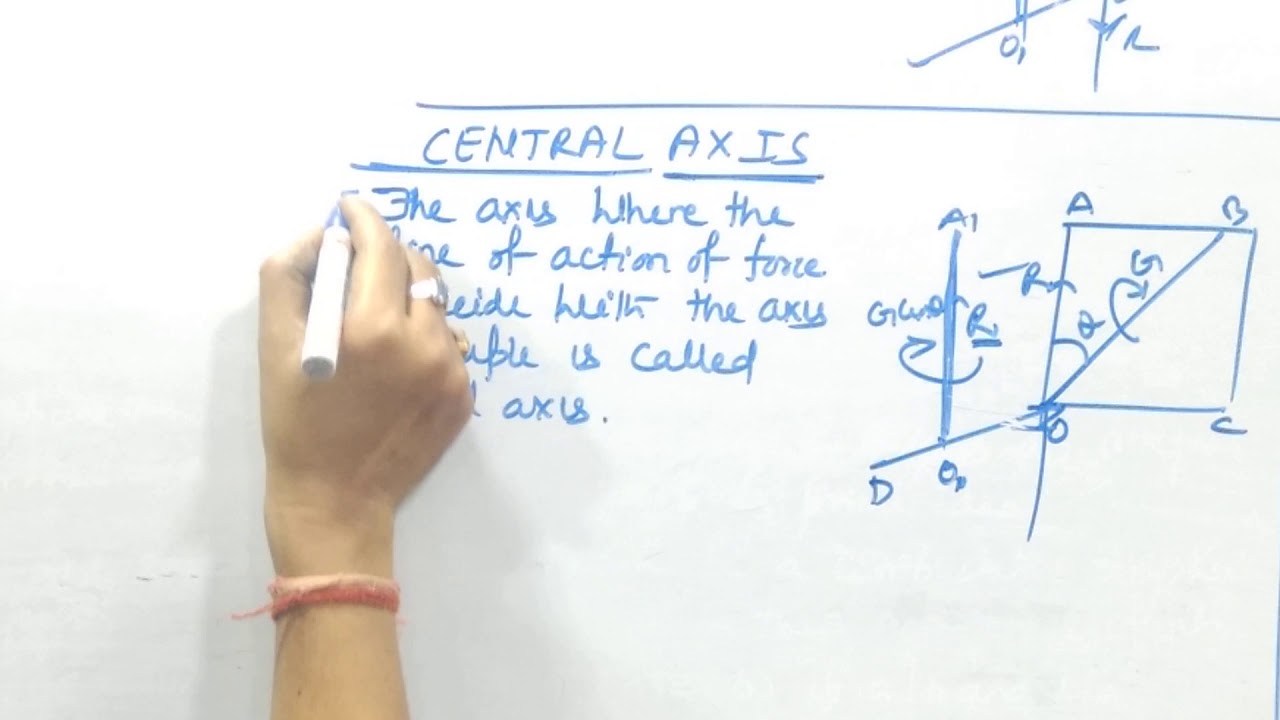 O₁
R
CENTRAL AXIS
The axis where the
of action of force
with the axis
is called
axis.
A₁
A
B
R
G
G cosθ
R
θ
O
C
D
O₁